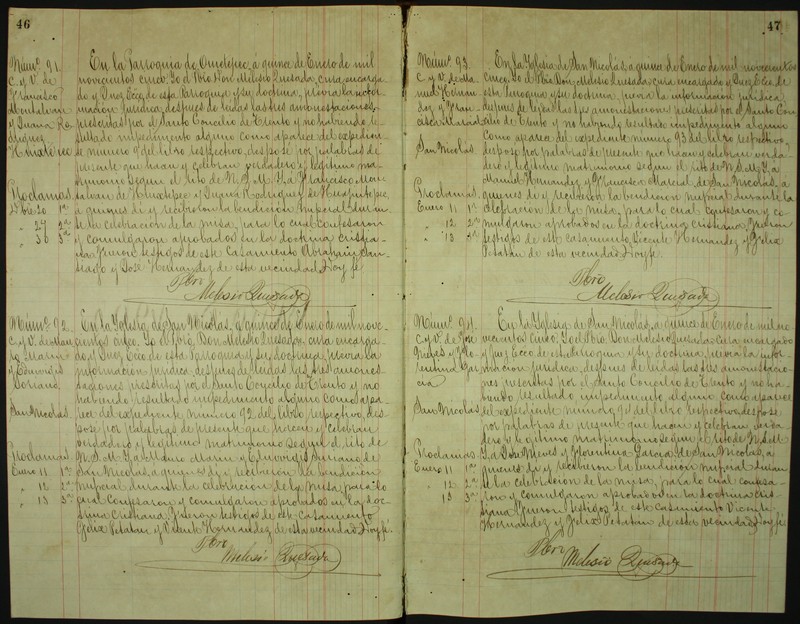 46
Núm. 91.
C. y V. de
Francisco
Montalvan
y Juana Ro
driguez
Huixtepec
Proclamas.
Dbre 20 1a
" 27 2a
" 30 3a
En la Parroquia de Ometepec, a quince de Enero de mil
novecientos cinco. Yo el Pbro. Don Melesio Quesada, cura encarga
do y Juez Ecco. de esta Parroquia y su doctrina, previa la infor
macion juridica, despues de leidas las tres amonestaciones
prescritas por el Santo Concilio de Trento y no habiendo re
sultado impedimento alguno como aparece del expedien
te numero 91 del libro respectivo, dispose por palabras de
presente que hacen y celebran verdadero y legitimo ma
trimonio segun el rito de N. S. M. Y. a Francisco Mon
talvan de Huixtepec y Juana Rodriguez de
a quienes di y recibieron la bendicion nupcial duran
te la celebracion de la misa, para lo cual confesaron
y comulgaron aprobados en la doctrina cristia
na. Fueron testigos de este Casamiento Abraham San
tiago y José Hernandez de esta vecindad. Doy fé.
Pbro
Melesio Quesada
Núm. 92.
C. y V. de Mau
ro Marin
y Eduwigis
Soriano
San Nicolas.
Proclamas
Enero 11 1a
" 12 2a
" 13 3a
En la Yglesia de San Nicolas, a quince de Enero de mil nove
cientos cinco. Yo el Pbro. Don Melesio Quesada, cura encarga
do y Juez Ecco. de esta Parroquia y su doctrina, previa la
informacion juridica, despues de leidas las tres amones
taciones prescritas por el Santo Concilio de Trento y no
habiendo resultado impedimento alguno como apa
rece del expediente numero 92 del libro respectivo, dis
pose por palabras de presente que hacen y celebran
verdadero y legitimo matrimonio segun el rito de
N. S. M. Y. a Mauro Marin y Eduwigis Soriano de
San Nicolas, a quienes di y recibieron la bendicion
nupcial durante la celebracion de la misa, para lo
cual confesaron y comulgaron aprobados en la doc
trina cristiana. Fueron testigos de este Casamiento
Felix Petatan y Vicente Hernandez de esta vecindad. Doy fé.
Pbro
Melesio Quesada
47
Núm. 93
C. y V. de Ma
nuel Hernan
dez y Fran
cisca Marcial
San Nicolas.
Proclamas
Enero 11 1a
" 12 2a
" 13 3a
En la Yglesia de San Nicolas, a quince de Enero de mil novecientos
cinco. Yo el Pbro. Don Melesio Quesada, cura encargado y Juez Ecco. de
esta Parroquia y su doctrina, previa la informacion juridica
despues de leidas las tres amonestaciones prescritas por el Santo Con
cilio de Trento y no habiendo resultado impedimento alguno
como aparece del expediente numero 93 del libro respectivo,
dispose por palabras de presente que hacen y celebran verda
dero y legitimo matrimonio segun el rito de N. S. M. Y. a
Manuel Hernandez y Francisca Marcial de San Nicolas, a
quienes di y recibieron la bendicion nupcial durante la
celebracion de la misa, para lo cual confesaron y co
mulgaron aprobados en la doctrina cristiana. Fueron
testigos de este casamiento Vicente Hernandez y Felix
Petatan de esta vecindad. Doy fé.
Pbro
Melesio Quesada
Núm. 94.
C. y V. de José
Nieves y Flo
rentina Gar
cia
San Nicolas
Proclamas
Enero 11 1a
" 12 2a
" 13 3a
En la Yglesia de San Nicolas, a quince de Enero de mil no
vecientos cinco. Yo el Pbro. Don Melesio Quesada Cura encargado
y Juez Ecco. de esta Parroquia y su doctrina previa la infor
macion juridica, despues de leidas las tres amonestacio
nes prescritas por el Santo Concilio de Trento y no ha
biendo resultado impedimento alguno como aparece
del expediente numero 94 del libro respectivo, dispose
por palabras de presente que hacen y celebran verda
dero y legitimo matrimonio segun el rito de N. S. M.
Y. a José Nieves y Florentina Garcia de San Nicolas, a
quienes di y recibieron la bendicion nupcial duran
te la celebracion de la misa, para lo cual confesa
ron y comulgaron aprobados en la doctrina cris
tiana. Fueron testigos de este casamiento Vicente
Hernandez y Felix Petatan de esta vecindad. Doy fé
Pbro
Melesio Quesada